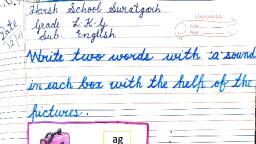 Harsh School Suratgarh
Grade L.K.G
Sub English
Date
Write two words with 'a' sound
in each box with the help of the
pictures.
ag